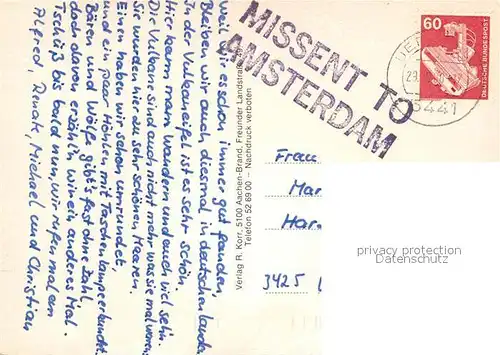 Weil wir's schon immer gut fanden,
bleiben wir auch diesmal in deutschen Landen.
In der Vulkaneifel ist es sehr schön.
Hier kann man wandern und auch viel seh'n.
Die Vulkane sind auch nicht mehr was sie mal waren,
Sie wurden hier zu sehr schönen Maaren.
Einen haben wir schon umrundet,
und ein paar Höhlen mit Taschenlampe erkundet.
Bären und Wölfe gibt's fast ohne Zahl,
doch davon erzähl'n wir ein anderes Mal.
Tschüß bis bald nun, wir rufen mal an
Alfred, Renate, Michael und Christian
Verlag R. Korr, 5100 Aachen-Brand, Freunder Landstraße
Telefon 52 69 00 – Nachdruck verboten
MISSENT TO
AMSTERDAM
60
DEUTSCHE BUNDESPOST
5441
Frau
Mar
Har
3425
privacy protection
Datenschutz